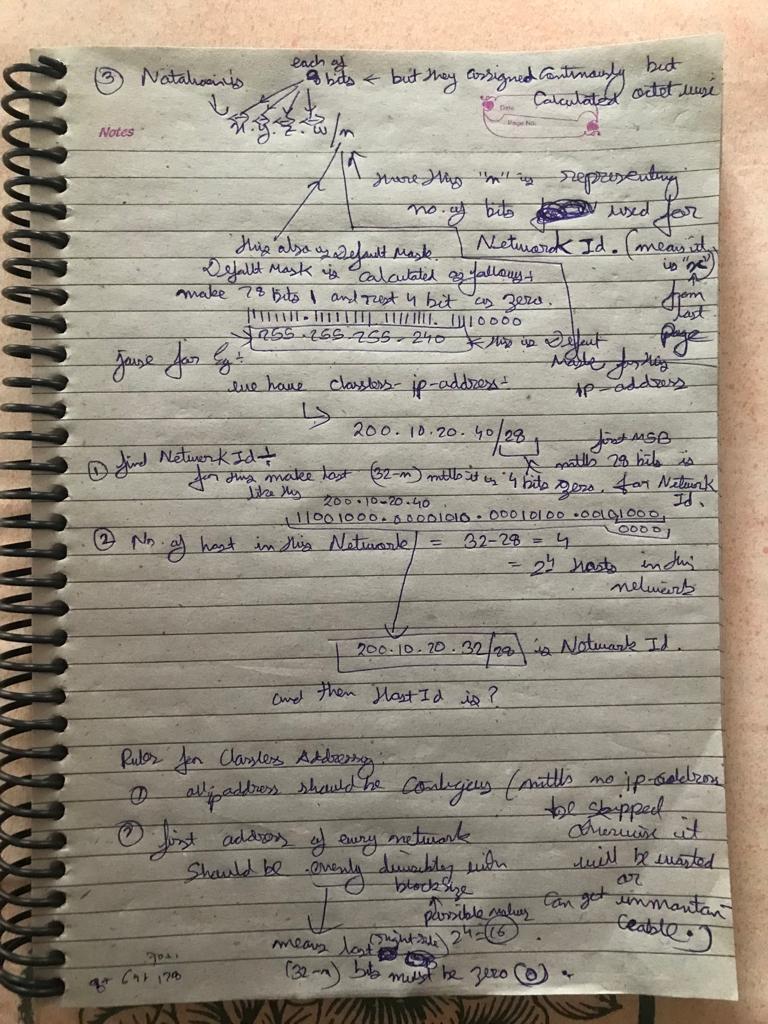 ③ Natahoin is each of 8 bits ← but they assigned continuously but
Calculated octet wise
Date
Page No:
Notes
x.y.z.w/n
here this "n" is representing
no. of bits used for
Network Id. (means it is "x" from last page
this also is Default Mask.
Default Mask is calculated as fallows÷
make 28 bits 1 and rest 4 bit as zero.
11111111.11111111.11111111.11110000
255.255.255.240 ← this is Defaut
Mask for this
ip-address
for Eg÷
we have classless- ip-address-
↳ 200.10.20.40/28
first MSB
28 bits is
for Network
Id.
① find Network Id÷
for this make last (32-n) it is 4 bits zero.
like this
200.10.20.40
11001000.00001010.00010100.00101000
0000
② No. of host in this Network = 32-28 = 4
= 2⁴ Hosts in this
network
200.10.20.32/28 is Network Id.
and then Host Id is?
Rules for Classless Addressing.
① all ip address should be Contigious ( no ip-address
be skipped
otherwise it
will be wasted
or
can get inmantan-
ceable.)
② first address of every network
should be evenly divisibly with
block size
↑
possible values
2⁴=16
means last (right side)
(32-n) bits must be zero (0).